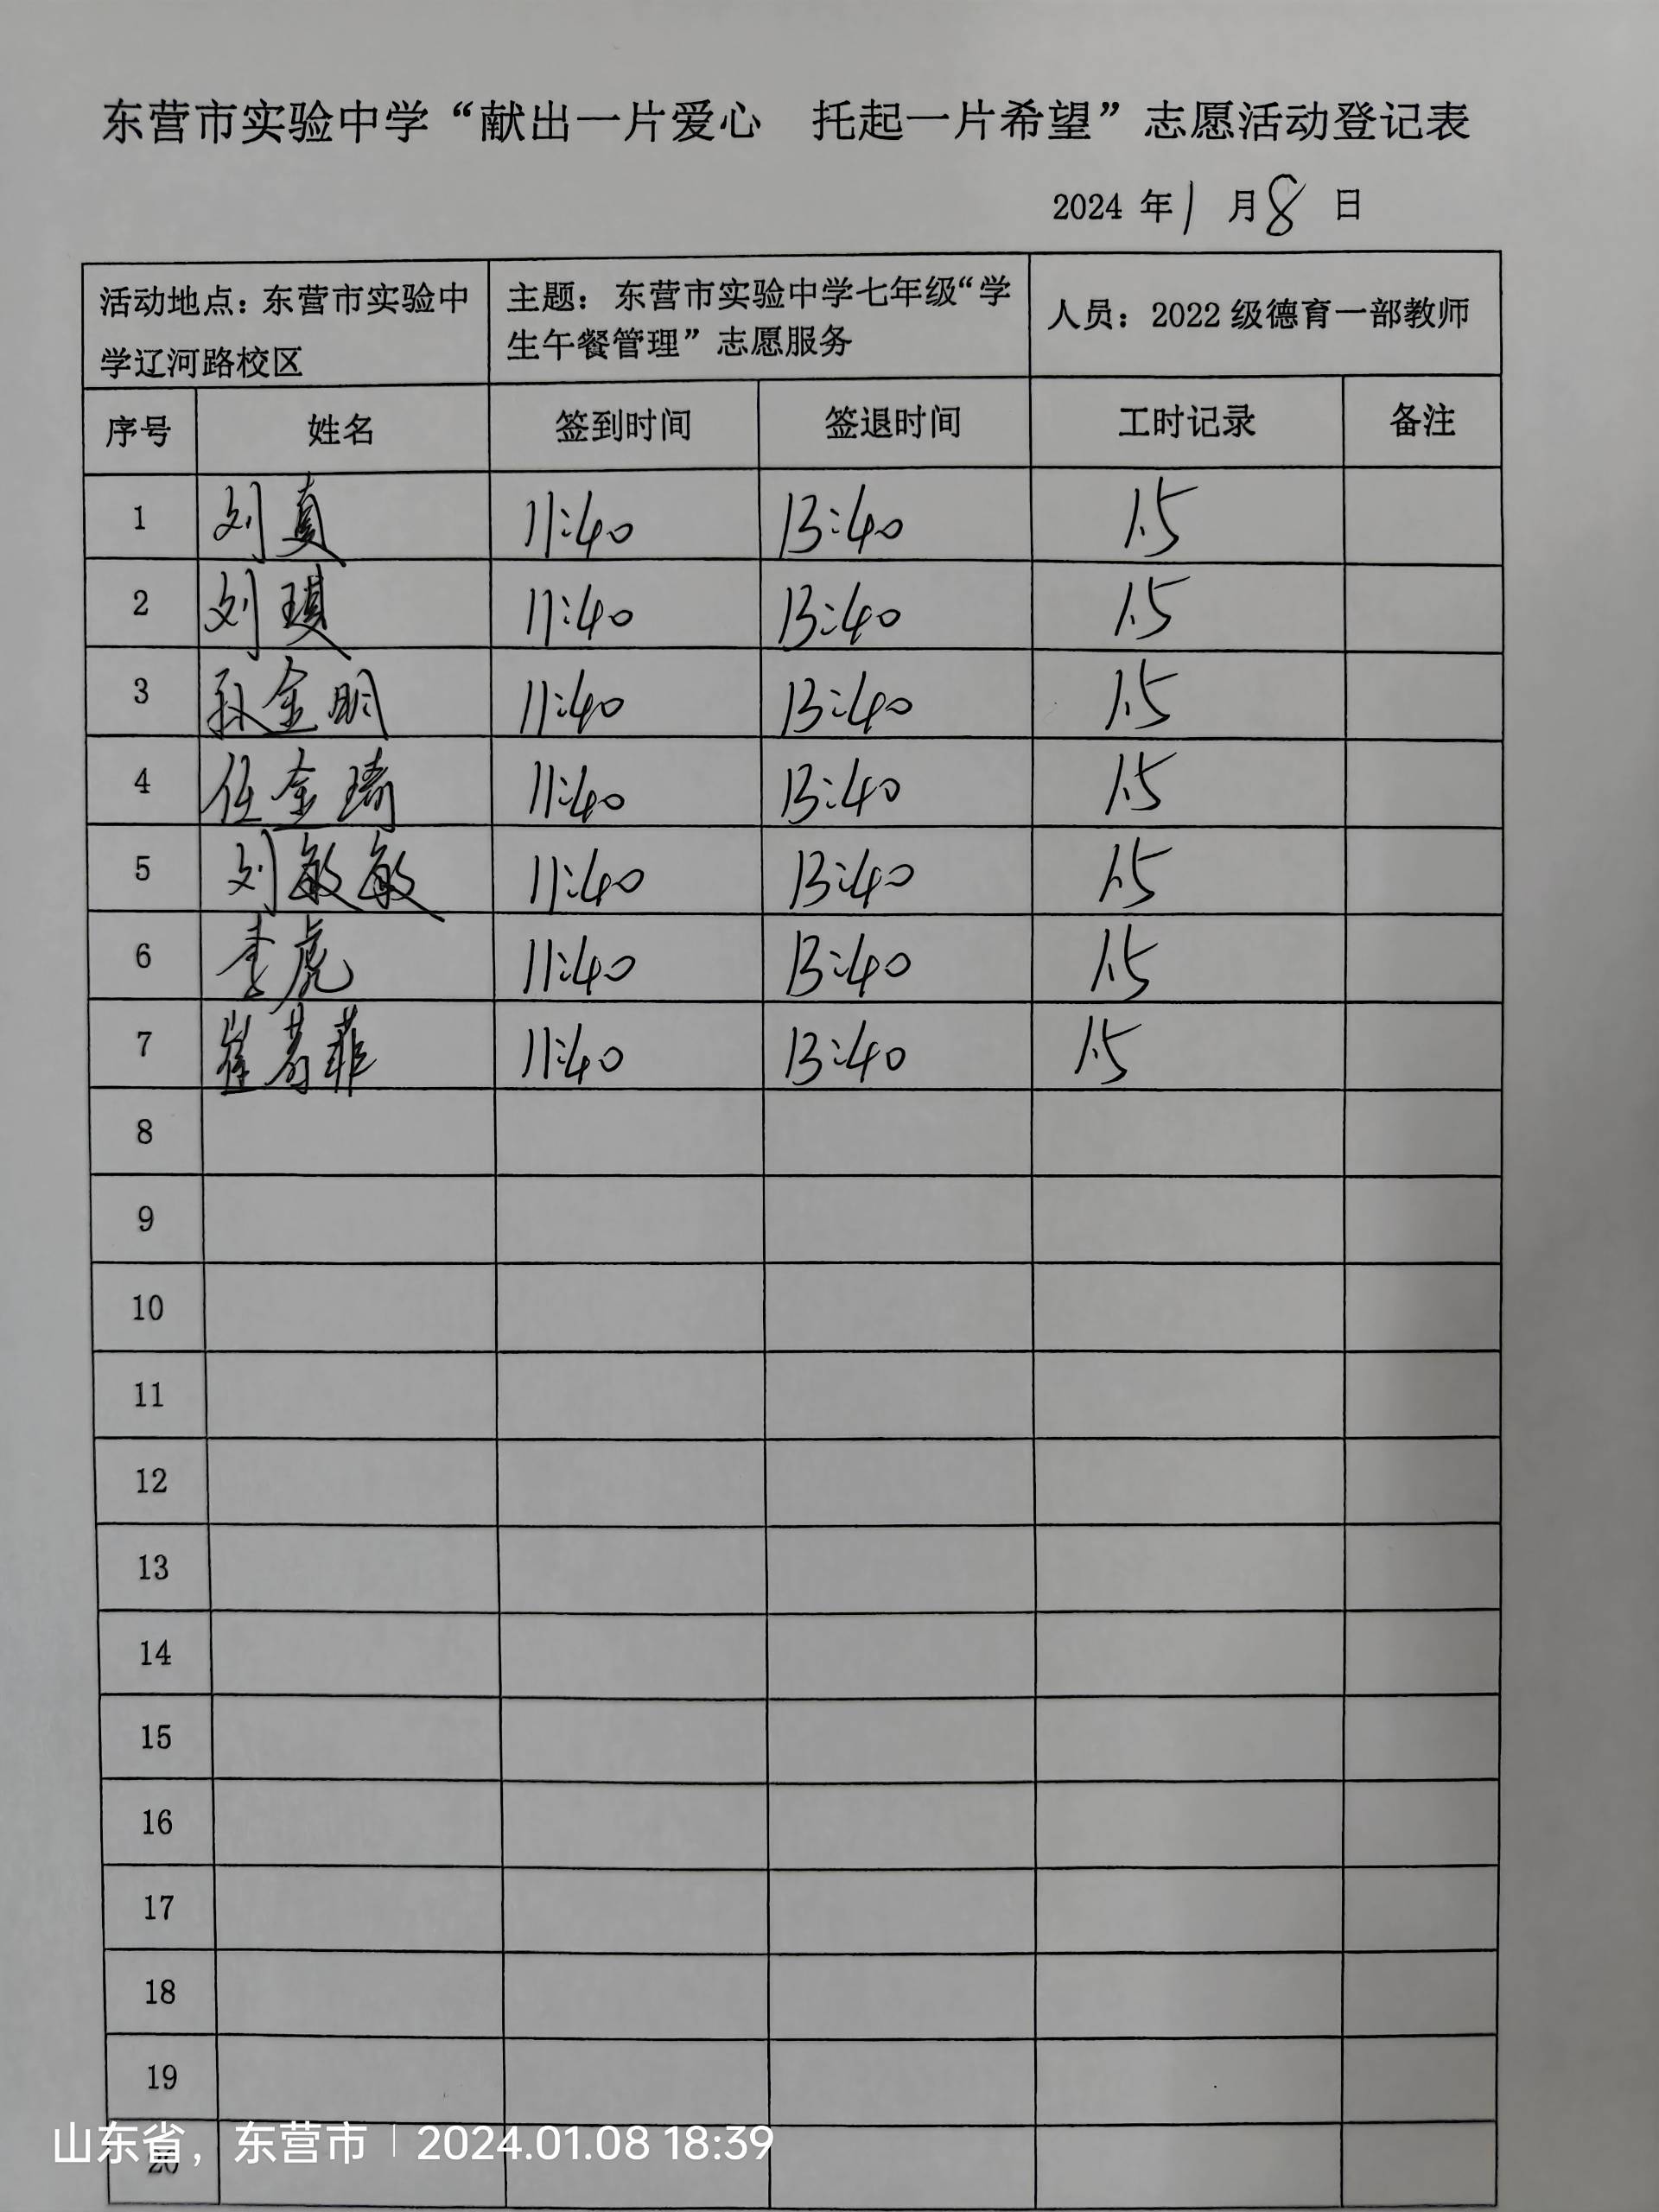 东营市实验中学“献出一片爱心 托起一片希望”志愿活动登记表
2024 年 1 月 8 日
活动地点：东营市实验中
学辽河路校区
主题：东营市实验中学七年级“学
生午餐管理”志愿服务
人员：2022 级德育一部教师
序号 姓名 签到时间 签退时间 工时记录 备注
1 刘真 11:40 13:40 1.5
2 刘琪 11:40 13:40 1.5
3 孙金明 11:40 13:40 1.5
4 任金琦 11:40 13:40 1.5
5 刘敏敏 11:40 13:40 1.5
6 李虎 11:40 13:40 1.5
7 崔 菲 11:40 13:40 1.5
8
9
10
11
12
13
14
15
16
17
18
19
20
山东省，东营市 | 2024.01.08 18:39